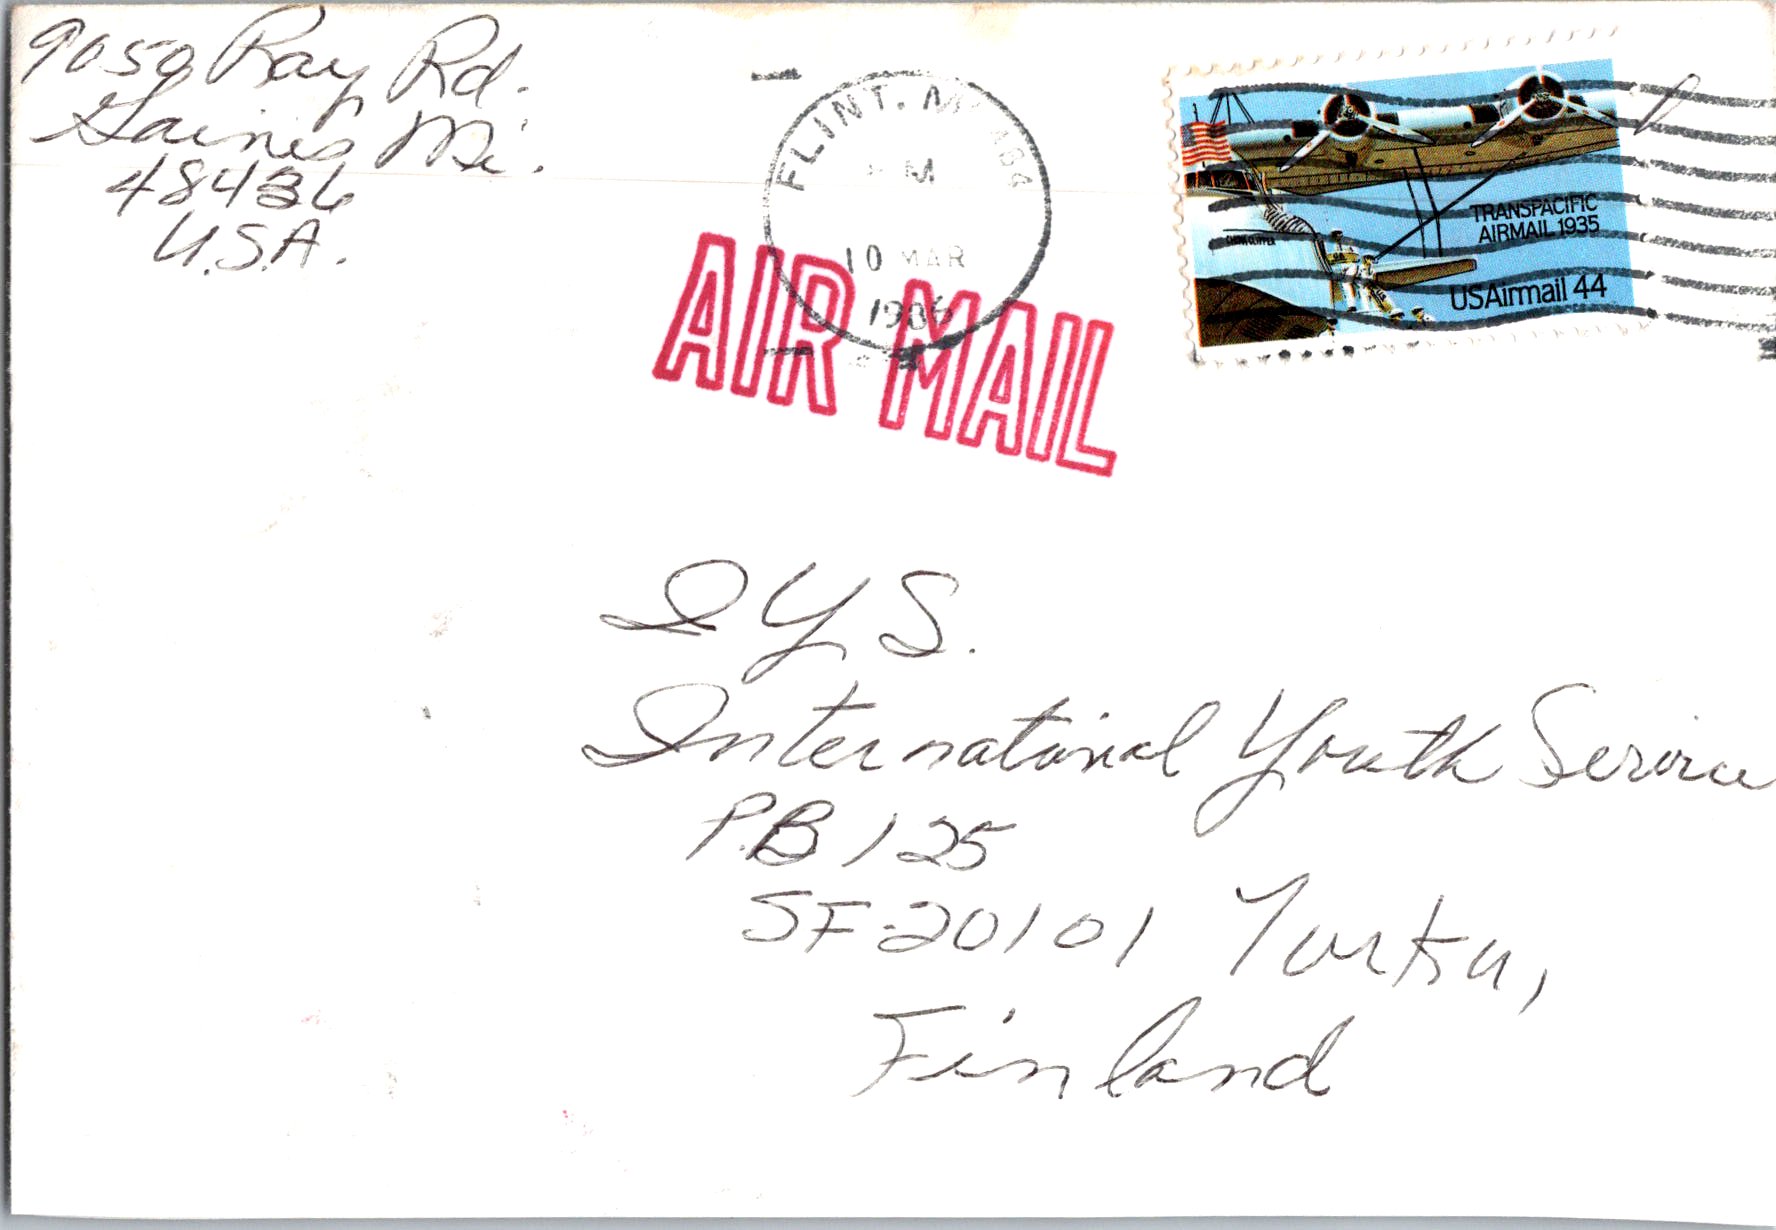 9050 Ray Rd.
Gaines Mi.
48436
U.S.A.
FLINT, MI 484
PM
10 MAR
1986
AIR MAIL
CHINA CLIPPER
TRANSPACIFIC
AIRMAIL 1935
USAirmail 44
I Y S.
International Youth Service
P.B 125
SF-20101 Turku,
Finland